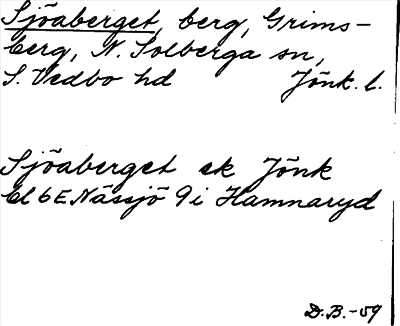 Sjöaberget, berg, Grims-
berg, N. Solberga sn,
S. Vedbo hd Jönk. l.
Sjöaberget ek Jönk
bl 6E Nässjö 9i Hamnaryd
D.B.-59